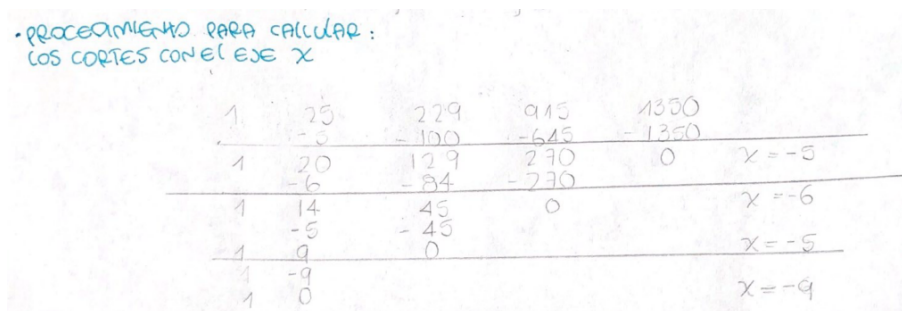 • PROCEDIMIENTO PARA CALCULAR:
LOS CORTES CON EL EJE X
1 25 229 915 1350
-5 -100 -645 -1350
1 20 129 270 0 x = -5
-6 -84 -270
1 14 45 0 x = -6
-5 -45
1 9 0 x = -5
1 -9
1 0 x = -9